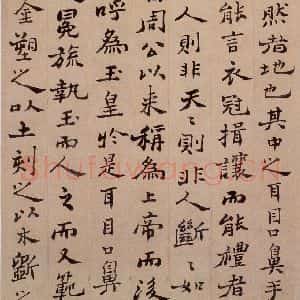 然者地也其中之耳目口鼻手
能言衣冠揖讓而能禮者
人則非天〻則非人斷〻如
周公以来稱為上帝而後
呼為玉皇於是耳目口鼻
冕旒執玉而人之而又範
金塑之以土刻之以木斲之